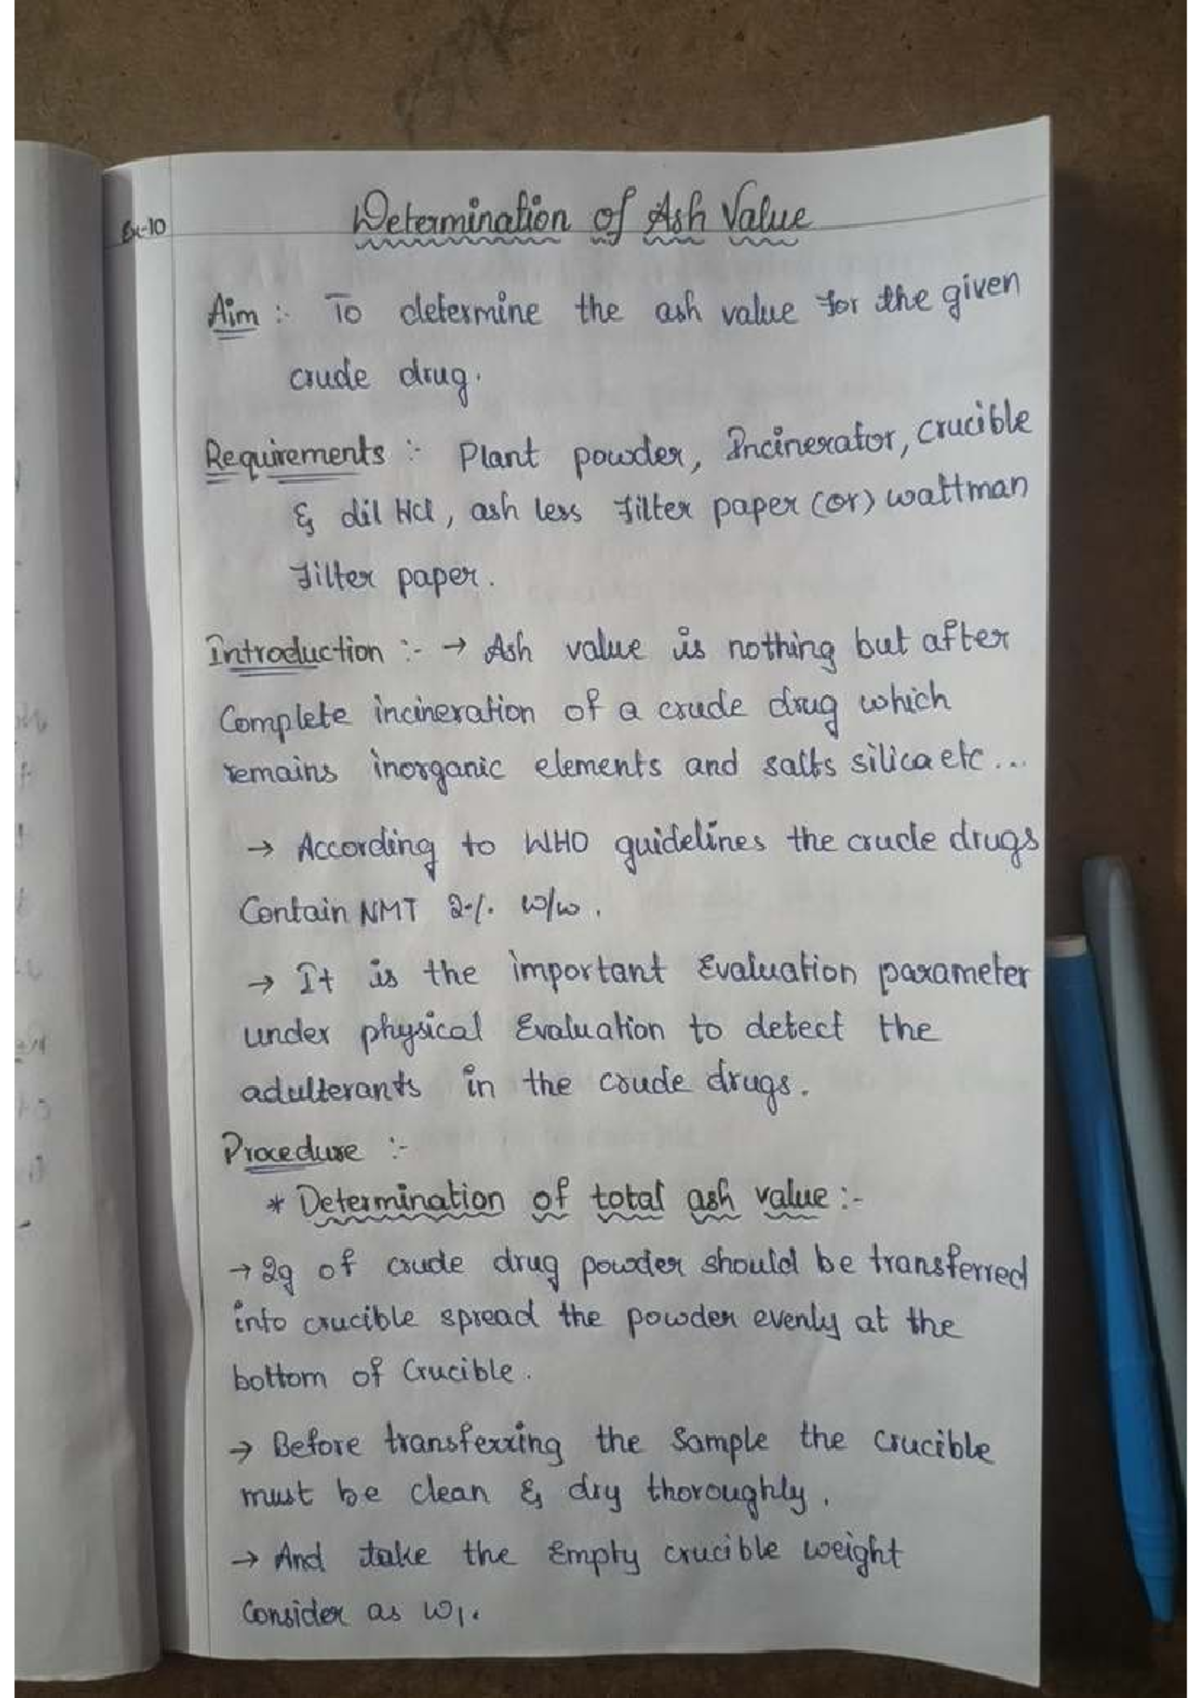 Ex-10
Determination of Ash Value
Aim :- To determine the ash value for the given
crude drug.
Requirements :- Plant powder, Incinerator, crucible
& dil Hcl, ash less filter paper (or) wattman
filter paper.
Introduction :- → Ash value is nothing but after
Complete incineration of a crude drug which
remains inorganic elements and salts silica etc...
→ According to WHO guidelines the crude drugs
Contain NMT 2% w/w.
→ It is the important Evaluation parameter
under physical Evaluation to detect the
adulterants in the crude drugs.
Procedure :-
* Determination of total ash value :-
→ 2g of crude drug powder should be transferred
into crucible spread the powder evenly at the
bottom of Crucible.
→ Before transferring the Sample the crucible
must be clean & dry thoroughly.
→ And take the Empty crucible weight
Consider as W1.